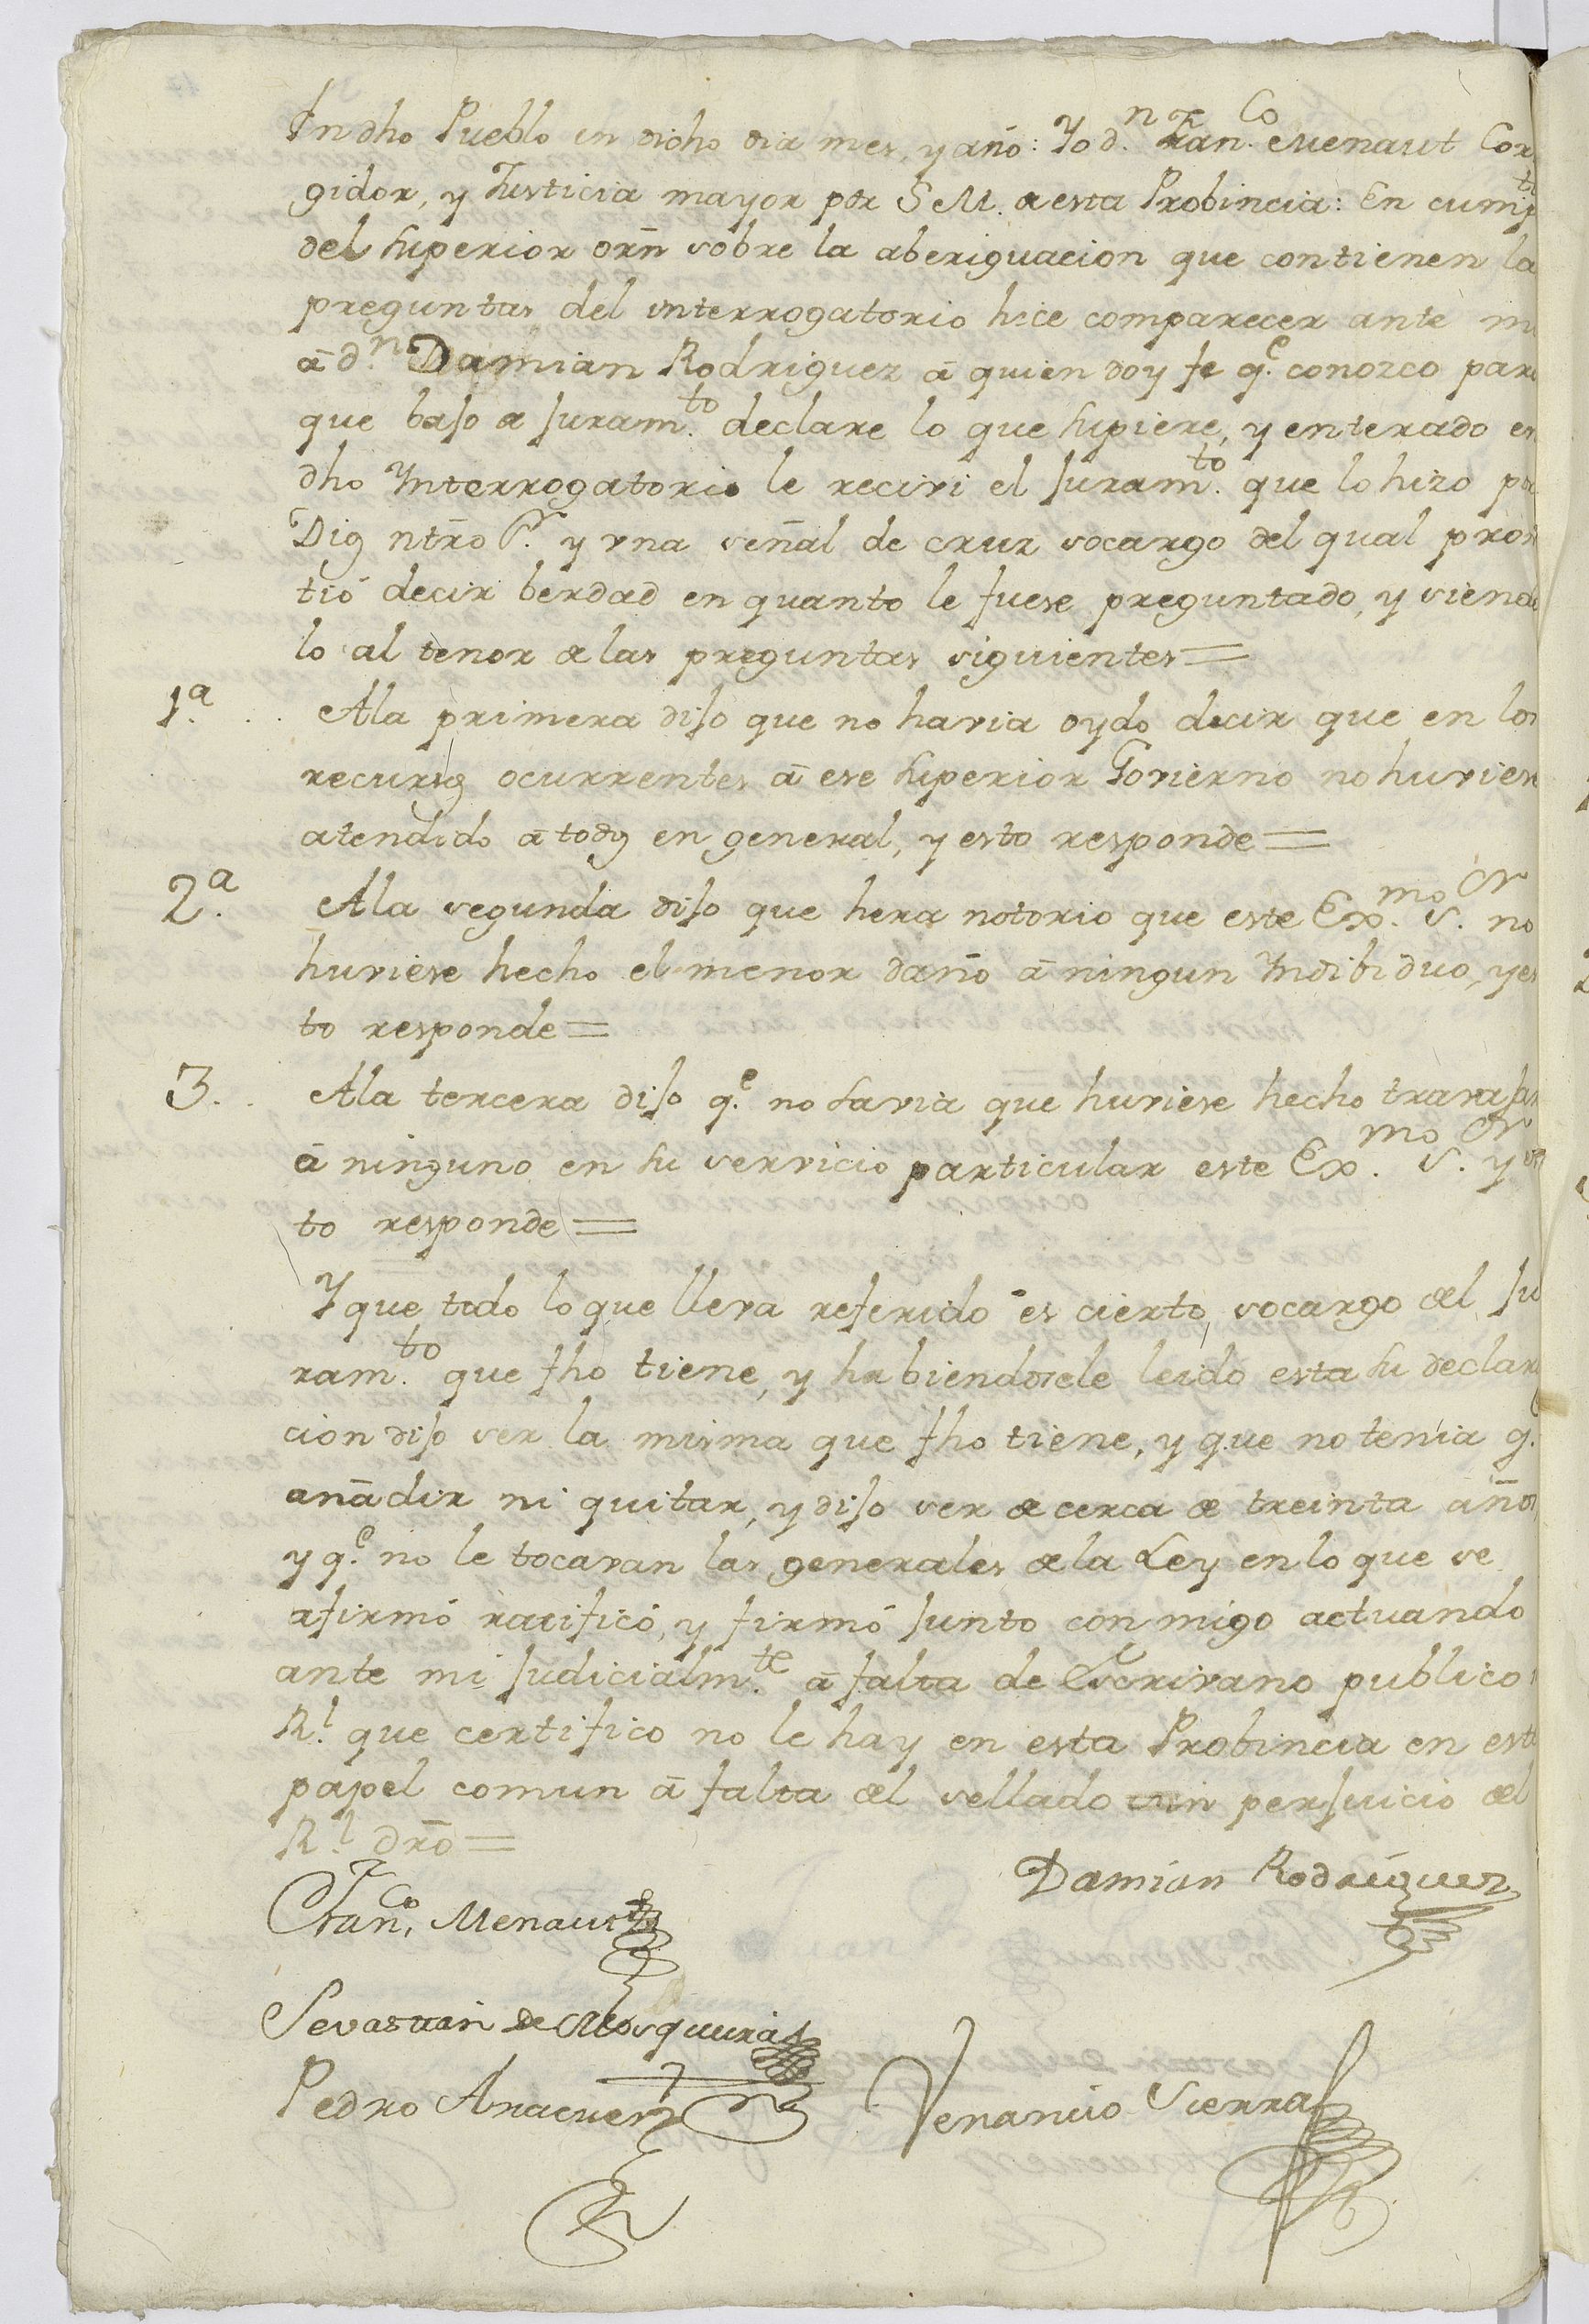 En dho Pueblo en dicho dia mes, y año: Yo d.n Fran.co Menaut Cor
gidor, y Justicia mayor por S M. de esta Probincia: En cump.to
del Superior orñ sobre la aberiguacion que contienen la
preguntas del interrogatorio hice comparecer ante m
â d.n Damian Rodriguez â quien doy fe q.e conozco para
que bajo de juram.to declare lo que supiere, y enterado en
dho Ynterrogatorio le recivi el juram.to que lo hizo por
Dios ntrô S.r y vna señal de cruz socargo del qual prom
tió decir berdad en quanto le fuese preguntado, y siendo
lo al tenor de las preguntas siguientes =
1.a Ala primera dijo que no havia oydo decir que en los
recursos ocurrentes â ese Superior Govierno no huviese
atendido â todos en general, y esto responde =
2.a Ala segunda dijo que hera notorio que este Ex.mo S.r no
huviese hecho el menor daño â ningun Yndibiduo, y es
to responde =
3. Ala tercera dijo q.e no savia que huviese hecho travajar
â ninguno en su servicio particular este Ex.mo S.r y es
to responde =
Y que todo lo que lleva referido es cierto, socargo del ju
ram.to que fho tiene, y habiendosele leido esta su declara
cion dijo ser la misma que fho tiene, y que no tenia q.
añadir ni quitar, y dijo ser de cerca de treinta años
y q.e no le tocavan las generales de la Ley en lo que se
afirmó ratificó, y firmó junto con migo actuando
ante mi judicialm.te â falta de Escrivano publico
R.l que certifico no le hay en esta Probincia en este
papel comun â falta del sellado sin perjuicio del
R.l drô =
Damian Rodriguez
Fran.co Menaut
Sevastian de Mosqueira
Pedro Venancio Sierra